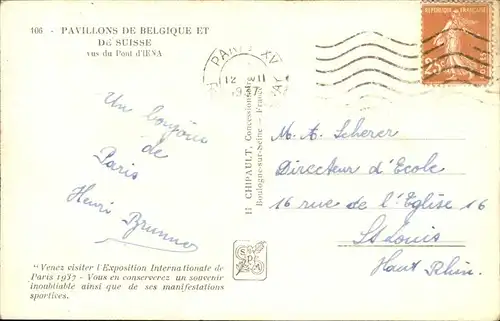 106 - PAVILLONS DE BELGIQUE ET
DE SUISSE
vus du Pont d'IENA
Un bonjour
de
Paris
Henri Brunner
"Venez visiter l'Exposition Internationale de
Paris 1937 - Vous en conserverez un souvenir
inoubliable ainsi que de ses manifestations
sportives.
H. CHIPAULT, Concessionnaire
Boulogne-sur-Seine - France
PARIS XV
12 II
1937
REPUBLIQUE FRANÇAISE
25c
M. A. Scherer
Directeur d'Ecole
16 rue de l'Eglise 16
St Louis
Haut Rhin.